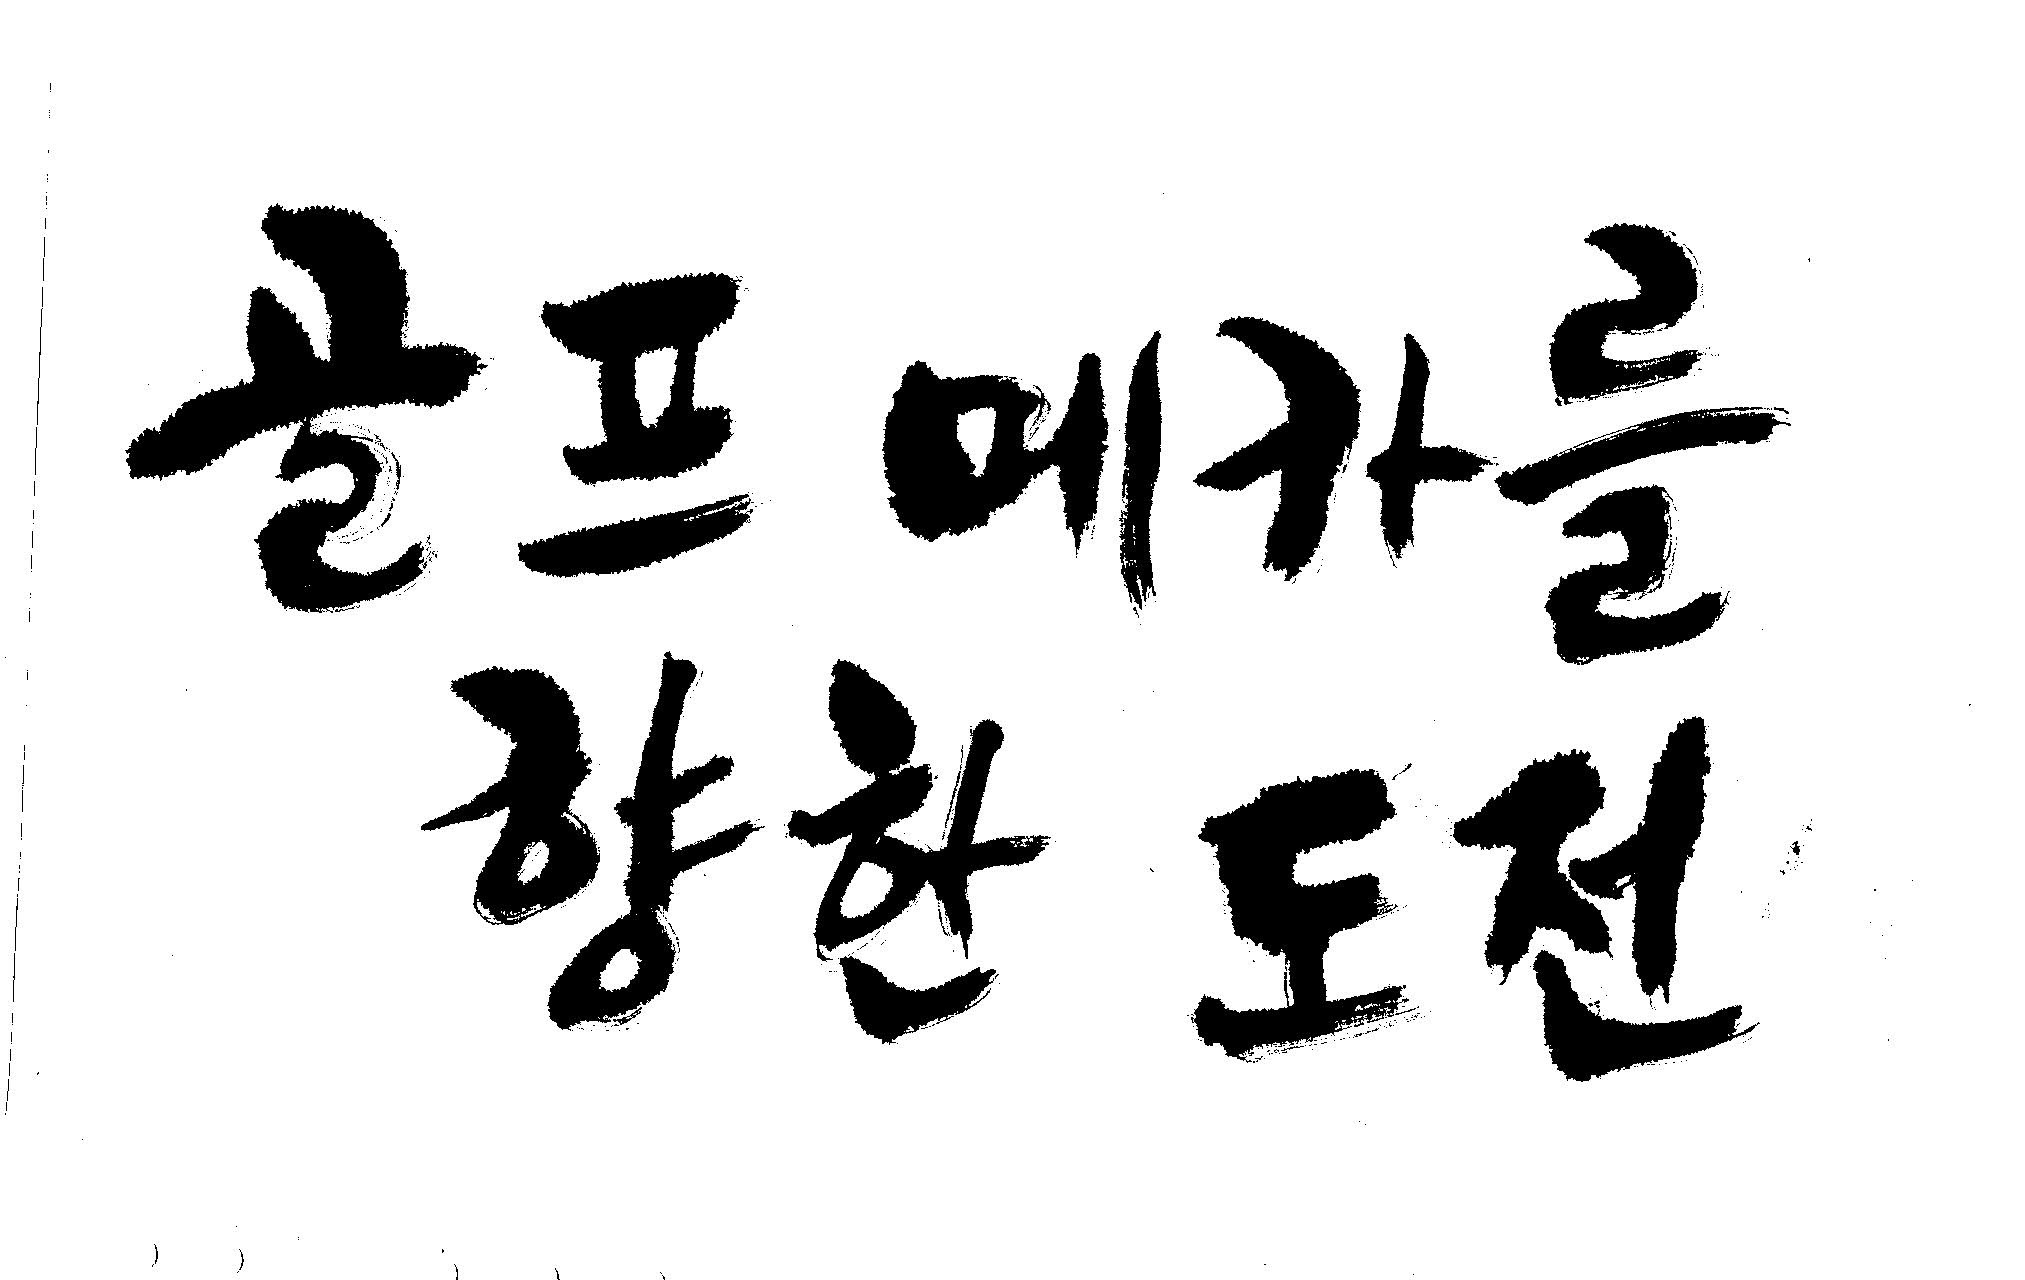 골프 메카를
향한 도전